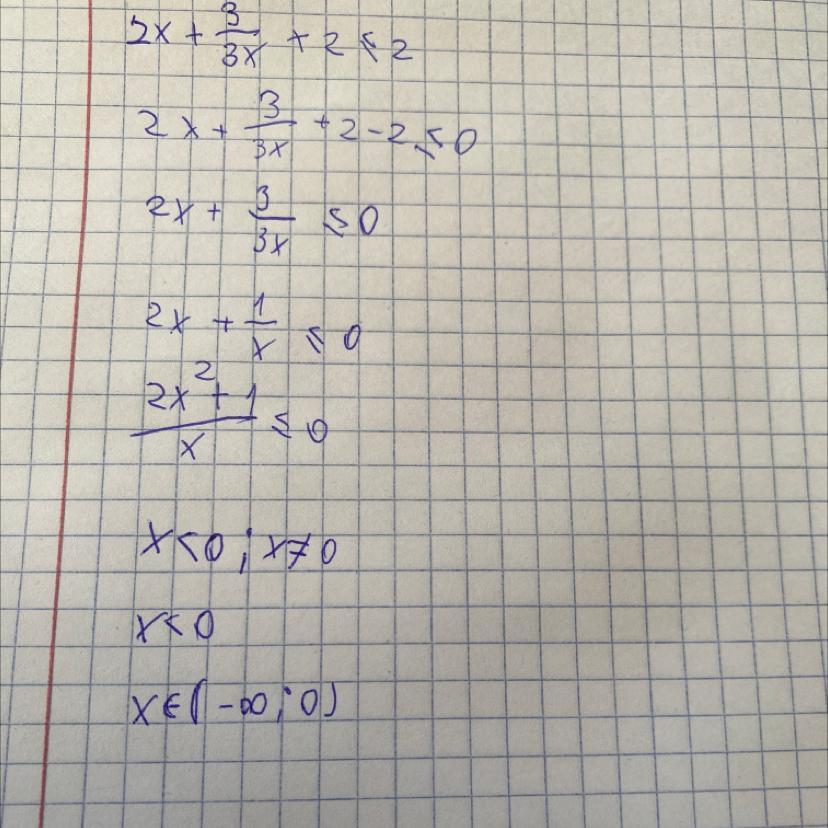 2x + 3/3x + 2 ≤ 2
2x + 3/3x + 2 - 2 ≤ 0
2x + 3/3x ≤ 0
2x + 1/x ≤ 0
2x² + 1/x ≤ 0
x < 0 ; x ≠ 0
x < 0
x ∈ (-∞ ; 0)